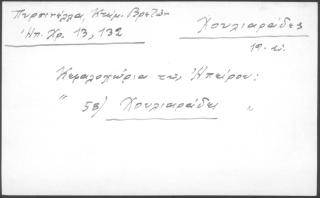 Πυρσινέλλα, Κτημ. Βρετῶν
Ἠπ. Χρ. 13, 132
Χουλιαράδες
19. αἰ.
Κεφαλοχώρια τῆς Ἠπείρου:
" 58) Χουλιαράδες "